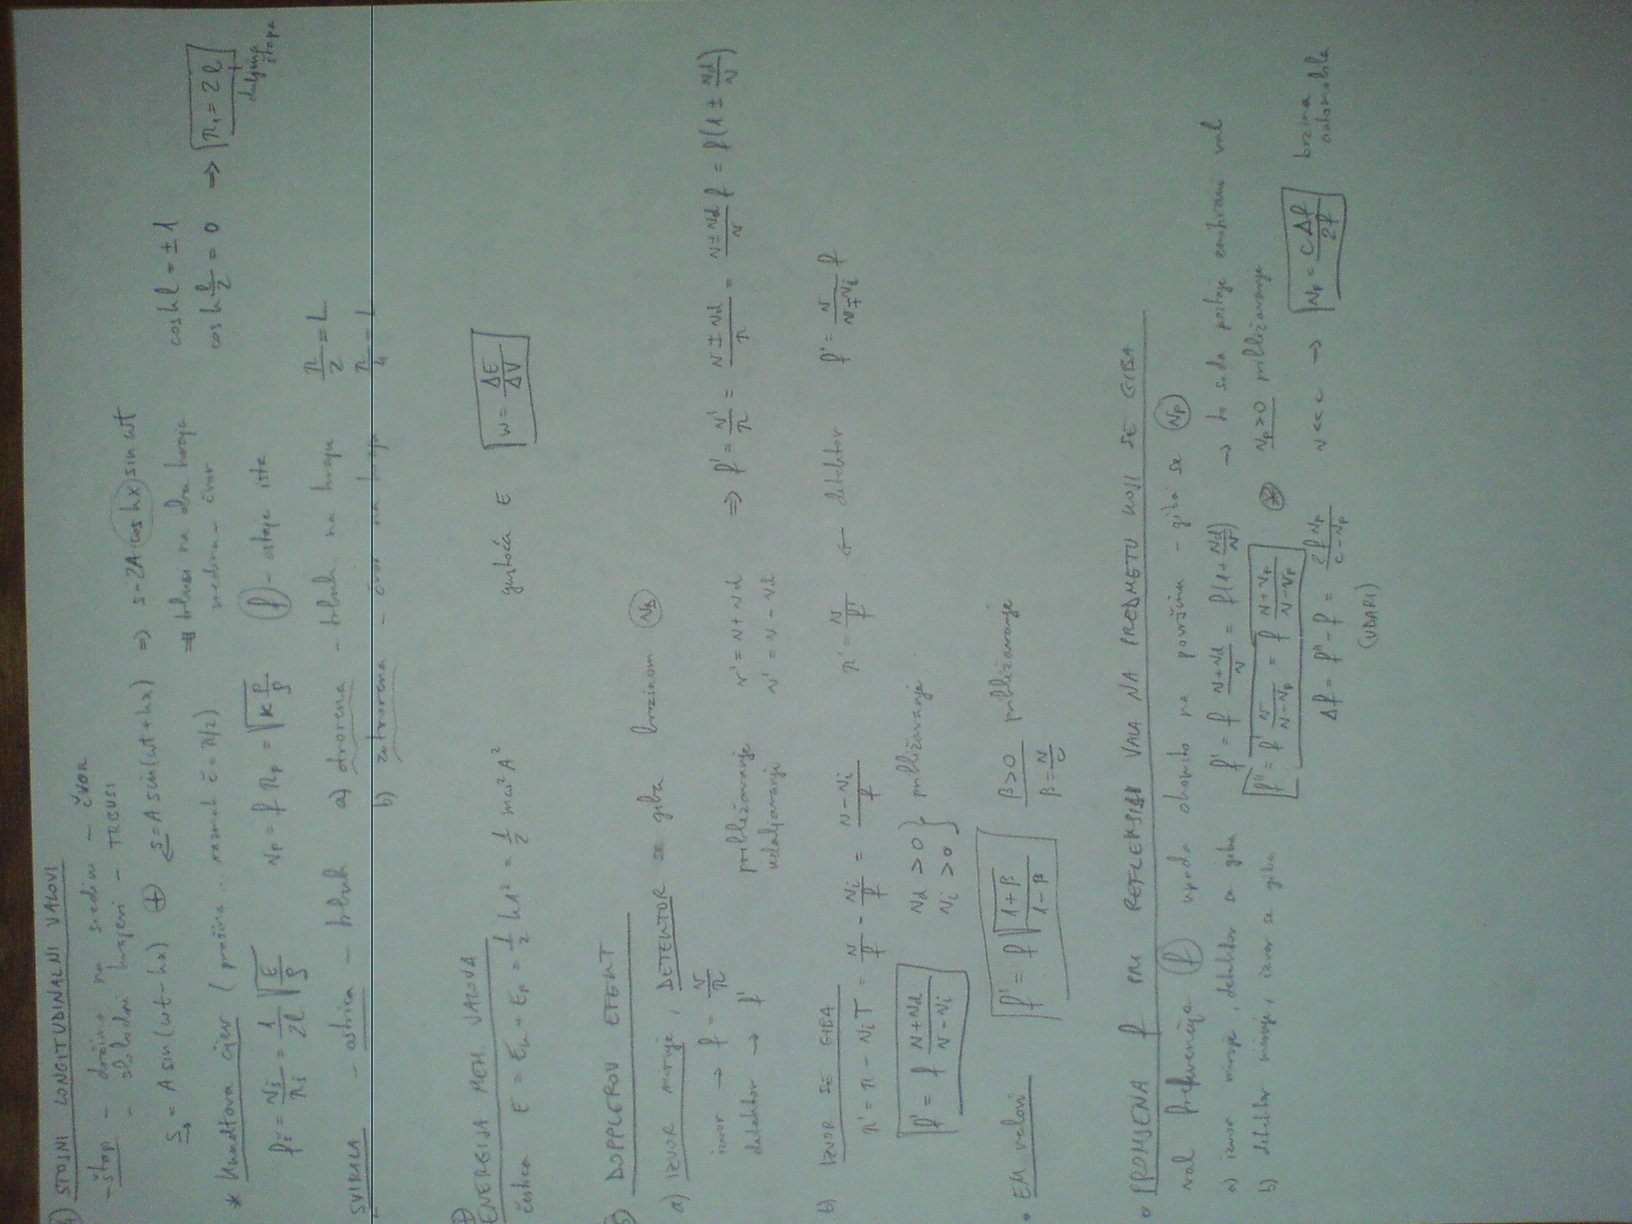 STOJNI LONGITUDINALNI VALOVI
- štap - držimo na sredini - ČVOR
- slobodni krajevi - TRBUSI
S→ = A sin(ωt - kx) ⊕ S← = A sin(ωt + kx) ⇒ s = 2A cos kx sin ωt
trbusi na oba kraja cos kl = ±1
sredina - čvor cos k l/2 = 0 ⇒ λ₁ = 2l
duljina štapa
* Kundtova cijev (prašina.. razmak č = λ/2)
fš = vš/λš = 1/2l √(E/ρ) vp = f λp = √(κ p/ρ) f - ostaje ista
SVIRALA - usnica - trbuh a) otvorena - trbuh na kraju λ/2 = L
b) zatvorena - čvor na kraju λ/4 = L
ENERGIJA MEH. VALOVA
čestica E = Ek + Ep = 1/2 kA² = 1/2 mω²A² gustoća E w = ΔE/ΔV
DOPPLEROV EFEKT
a) IZVOR miruje, DETEKTOR se giba brzinom vd
izvor → f = v/λ približavanje v' = v + vd
detektor → f' udaljavanje v' = v - vd
⇒ f' = v'/λ = (v ± vd)/λ = (v ± vd)/v f = f(1 ± vd/v)
b) IZVOR SE GIBA
λ' = λ - viT = v/f - vi/f = (v - vi)/f λ' = v/f' ← detektor f' = v/(v ∓ vi) f
f' = f (v + vd)/(v - vi) vd > 0 vi > 0 } približavanje
• EM valovi f' = f √((1 + β)/(1 - β)) β > 0 približavanje
β = v/c
• PROMJENA f PRI REFLEKSIJI VALA NA PREDMETU KOJI SE GIBA
val frekvencije f upada okomito na površinu - giba se vp
a) izvor miruje, detektor se giba f' = f (v + vd)/v = f(1 + vd/v) → to sada postaje emitirani val
b) detektor miruje, izvor se giba f'' = f' v/(v - vp) = f (v + vp)/(v - vp) ⊛ vp > 0 približavanje
Δf = f'' - f = 2f vp/(c - vp) v << c → vp = cΔf/2f brzina automobila
(UDARI)